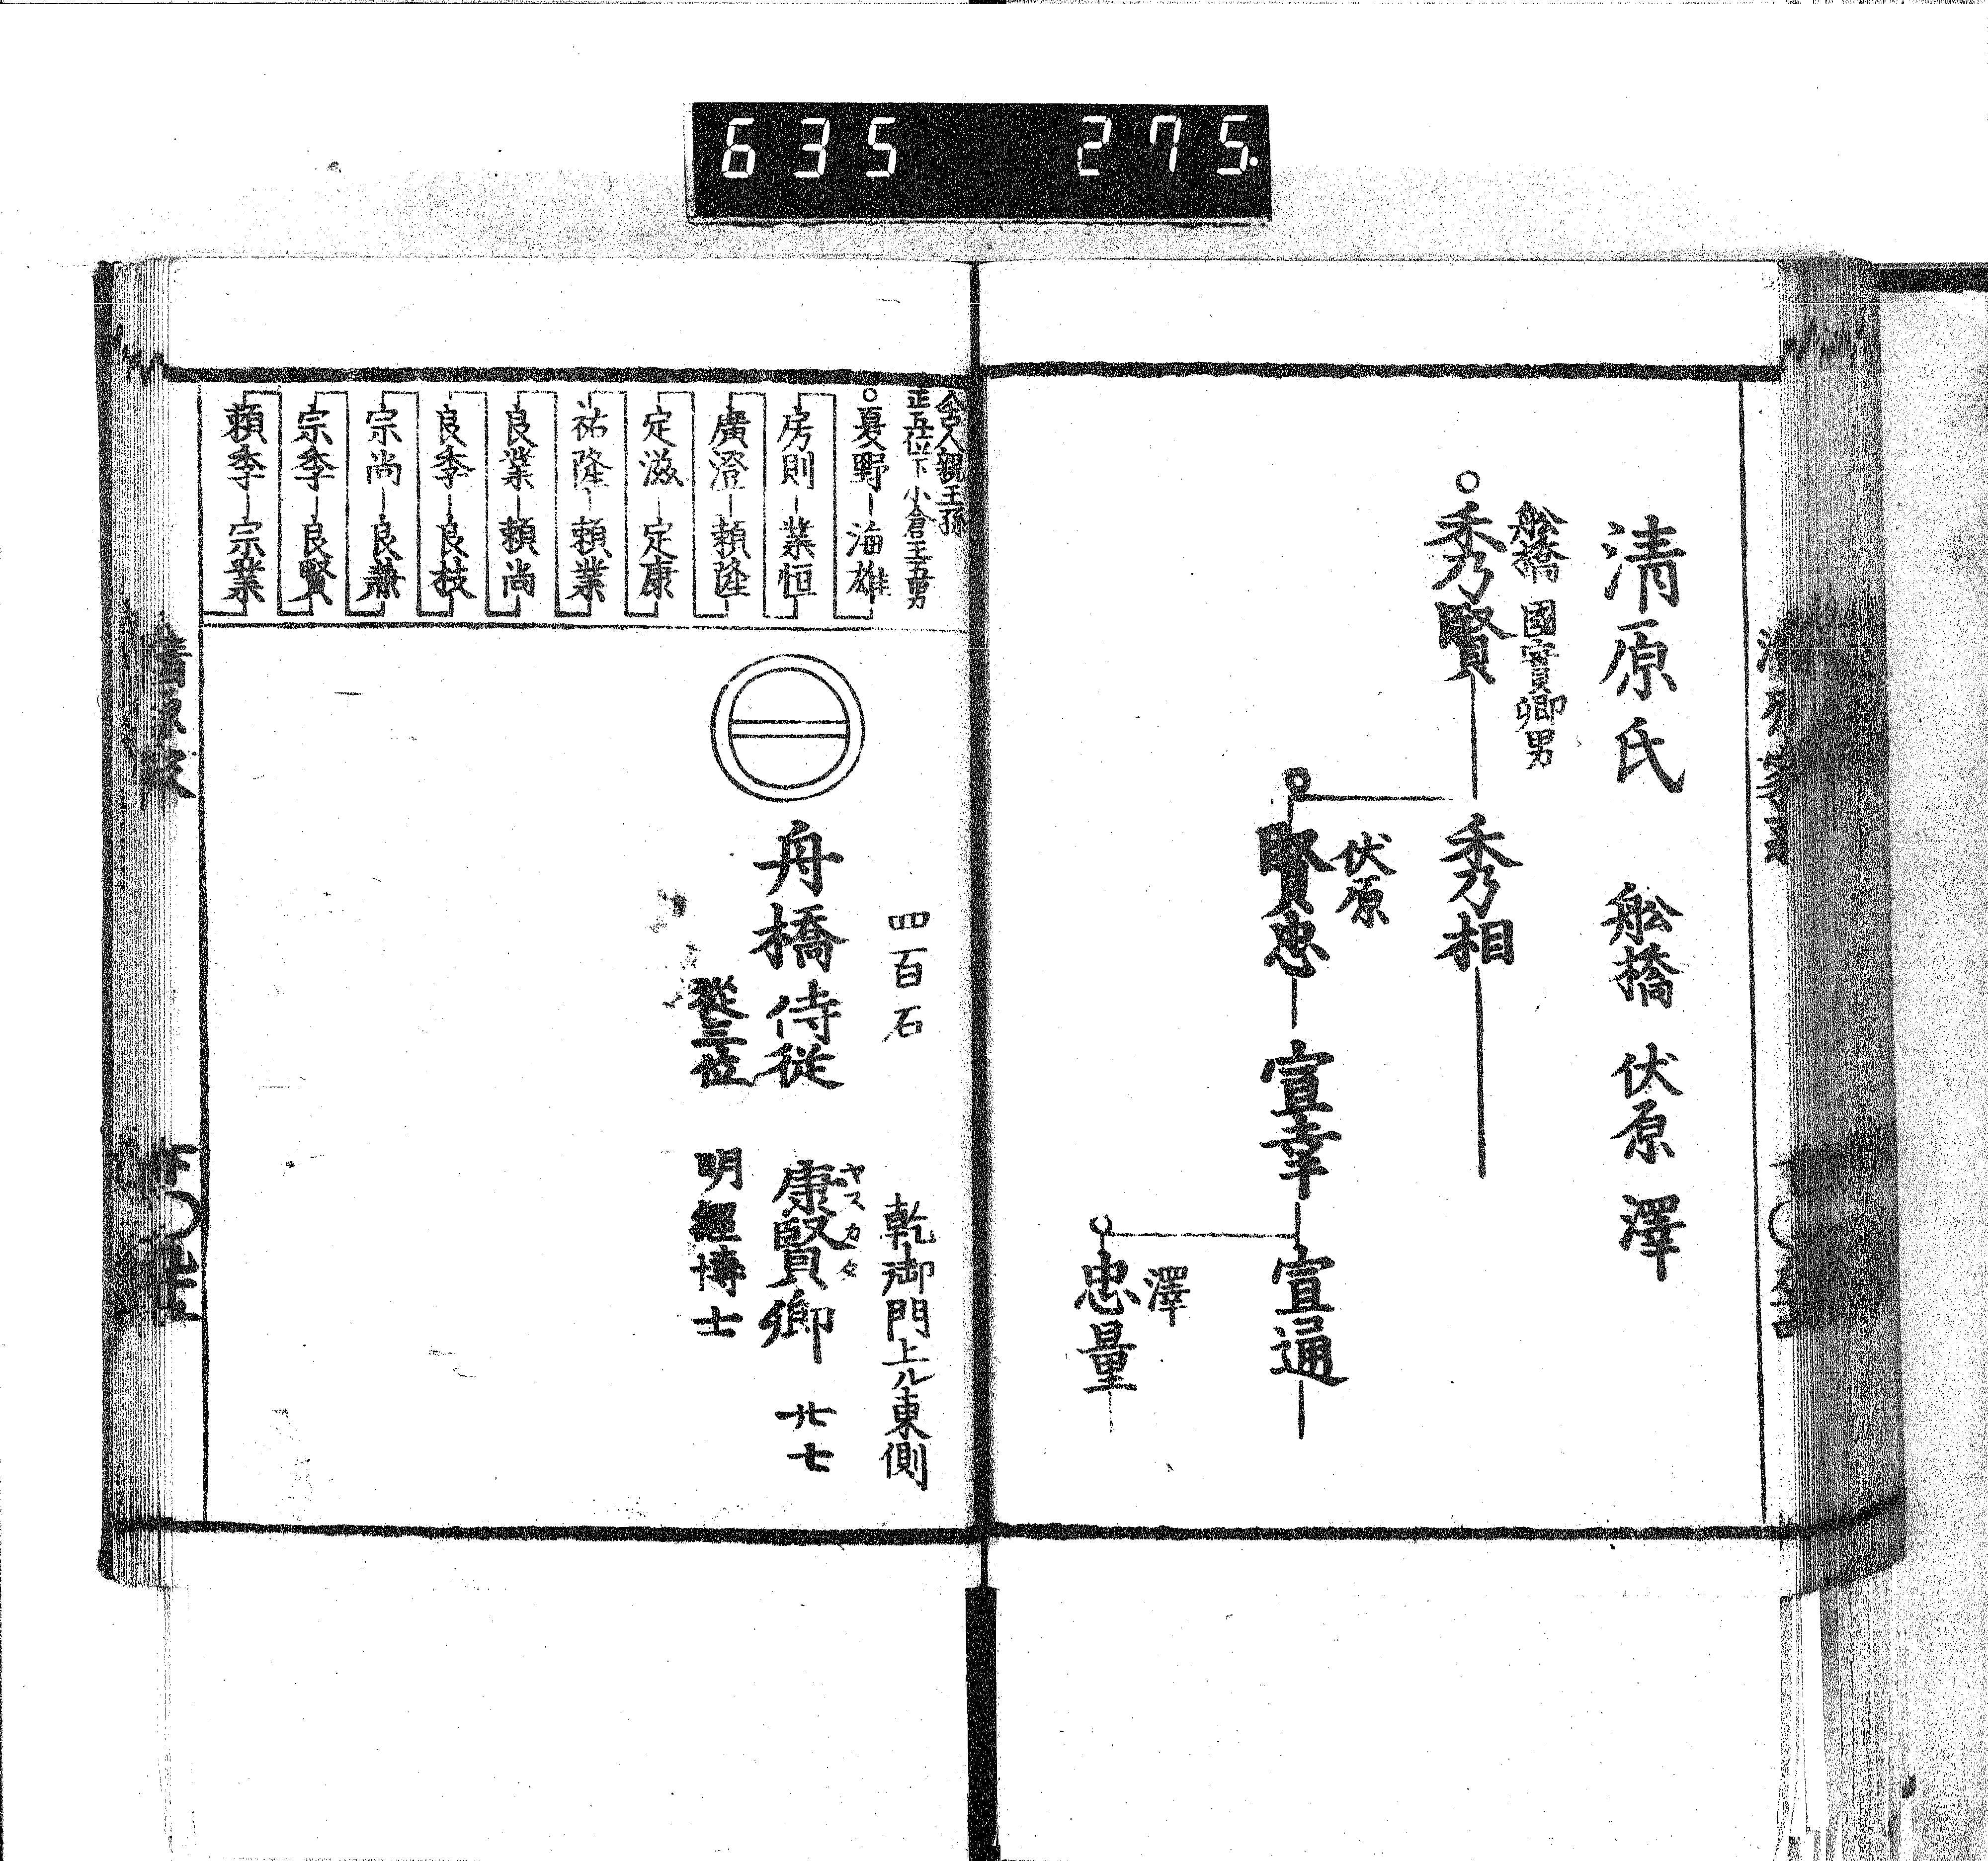 635 275.
清原氏 舩橋 伏原 澤
舩橋 國賢卿男
秀賢
秀相
伏原
賢忠 宣幸 宣通
澤
忠量
舎人親王孫
正五位下小倉王五男
夏野 海雄
房則 業恒
廣澄 頼隆
定滋 定康
祐隆 頼業
良業 頼尚
良季 良枝
宗尚 良兼
宗季 良賢
頼季 宗業
四百石 乾御門上ル東側
ヤスカタ
舟橋侍従 康賢卿 廿七
従三位 明經博士